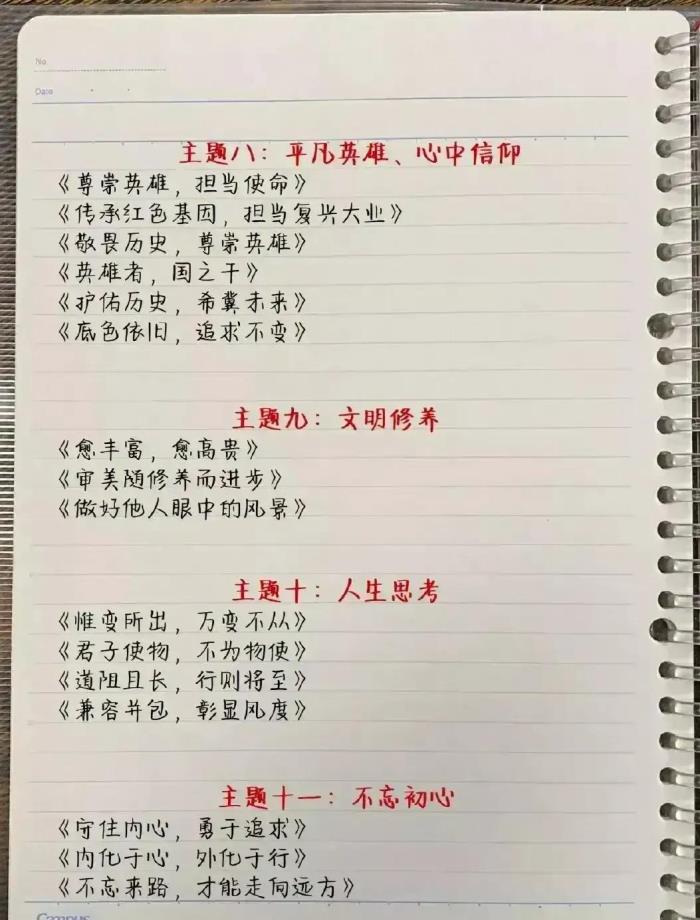 No.
Date
主题八：平凡英雄、心中信仰
《尊崇英雄，担当使命》
《传承红色基因，担当复兴大业》
《敬畏历史，尊崇英雄》
《英雄者，国之干》
《护佑历史，希冀未来》
《底色依旧，追求不变》
主题九：文明修养
《愈丰富，愈高贵》
《审美随修养而进步》
《做好他人眼中的风景》
主题十：人生思考
《惟变所出，万变不从》
《君子使物，不为物使》
《道阻且长，行则将至》
《兼容并包，彰显风度》
主题十一：不忘初心
《守住内心，勇于追求》
《内化于心，外化于行》
《不忘来路，才能走向远方》
Campus